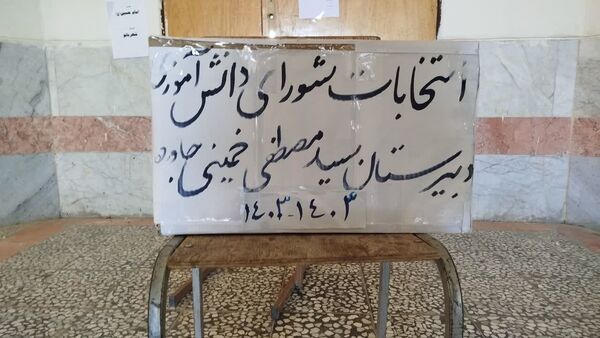 انتخابات شورای دانش آموزی
دبیرستان سید مصطفی خمینی
۱۴۰۳-۱۴۰۳